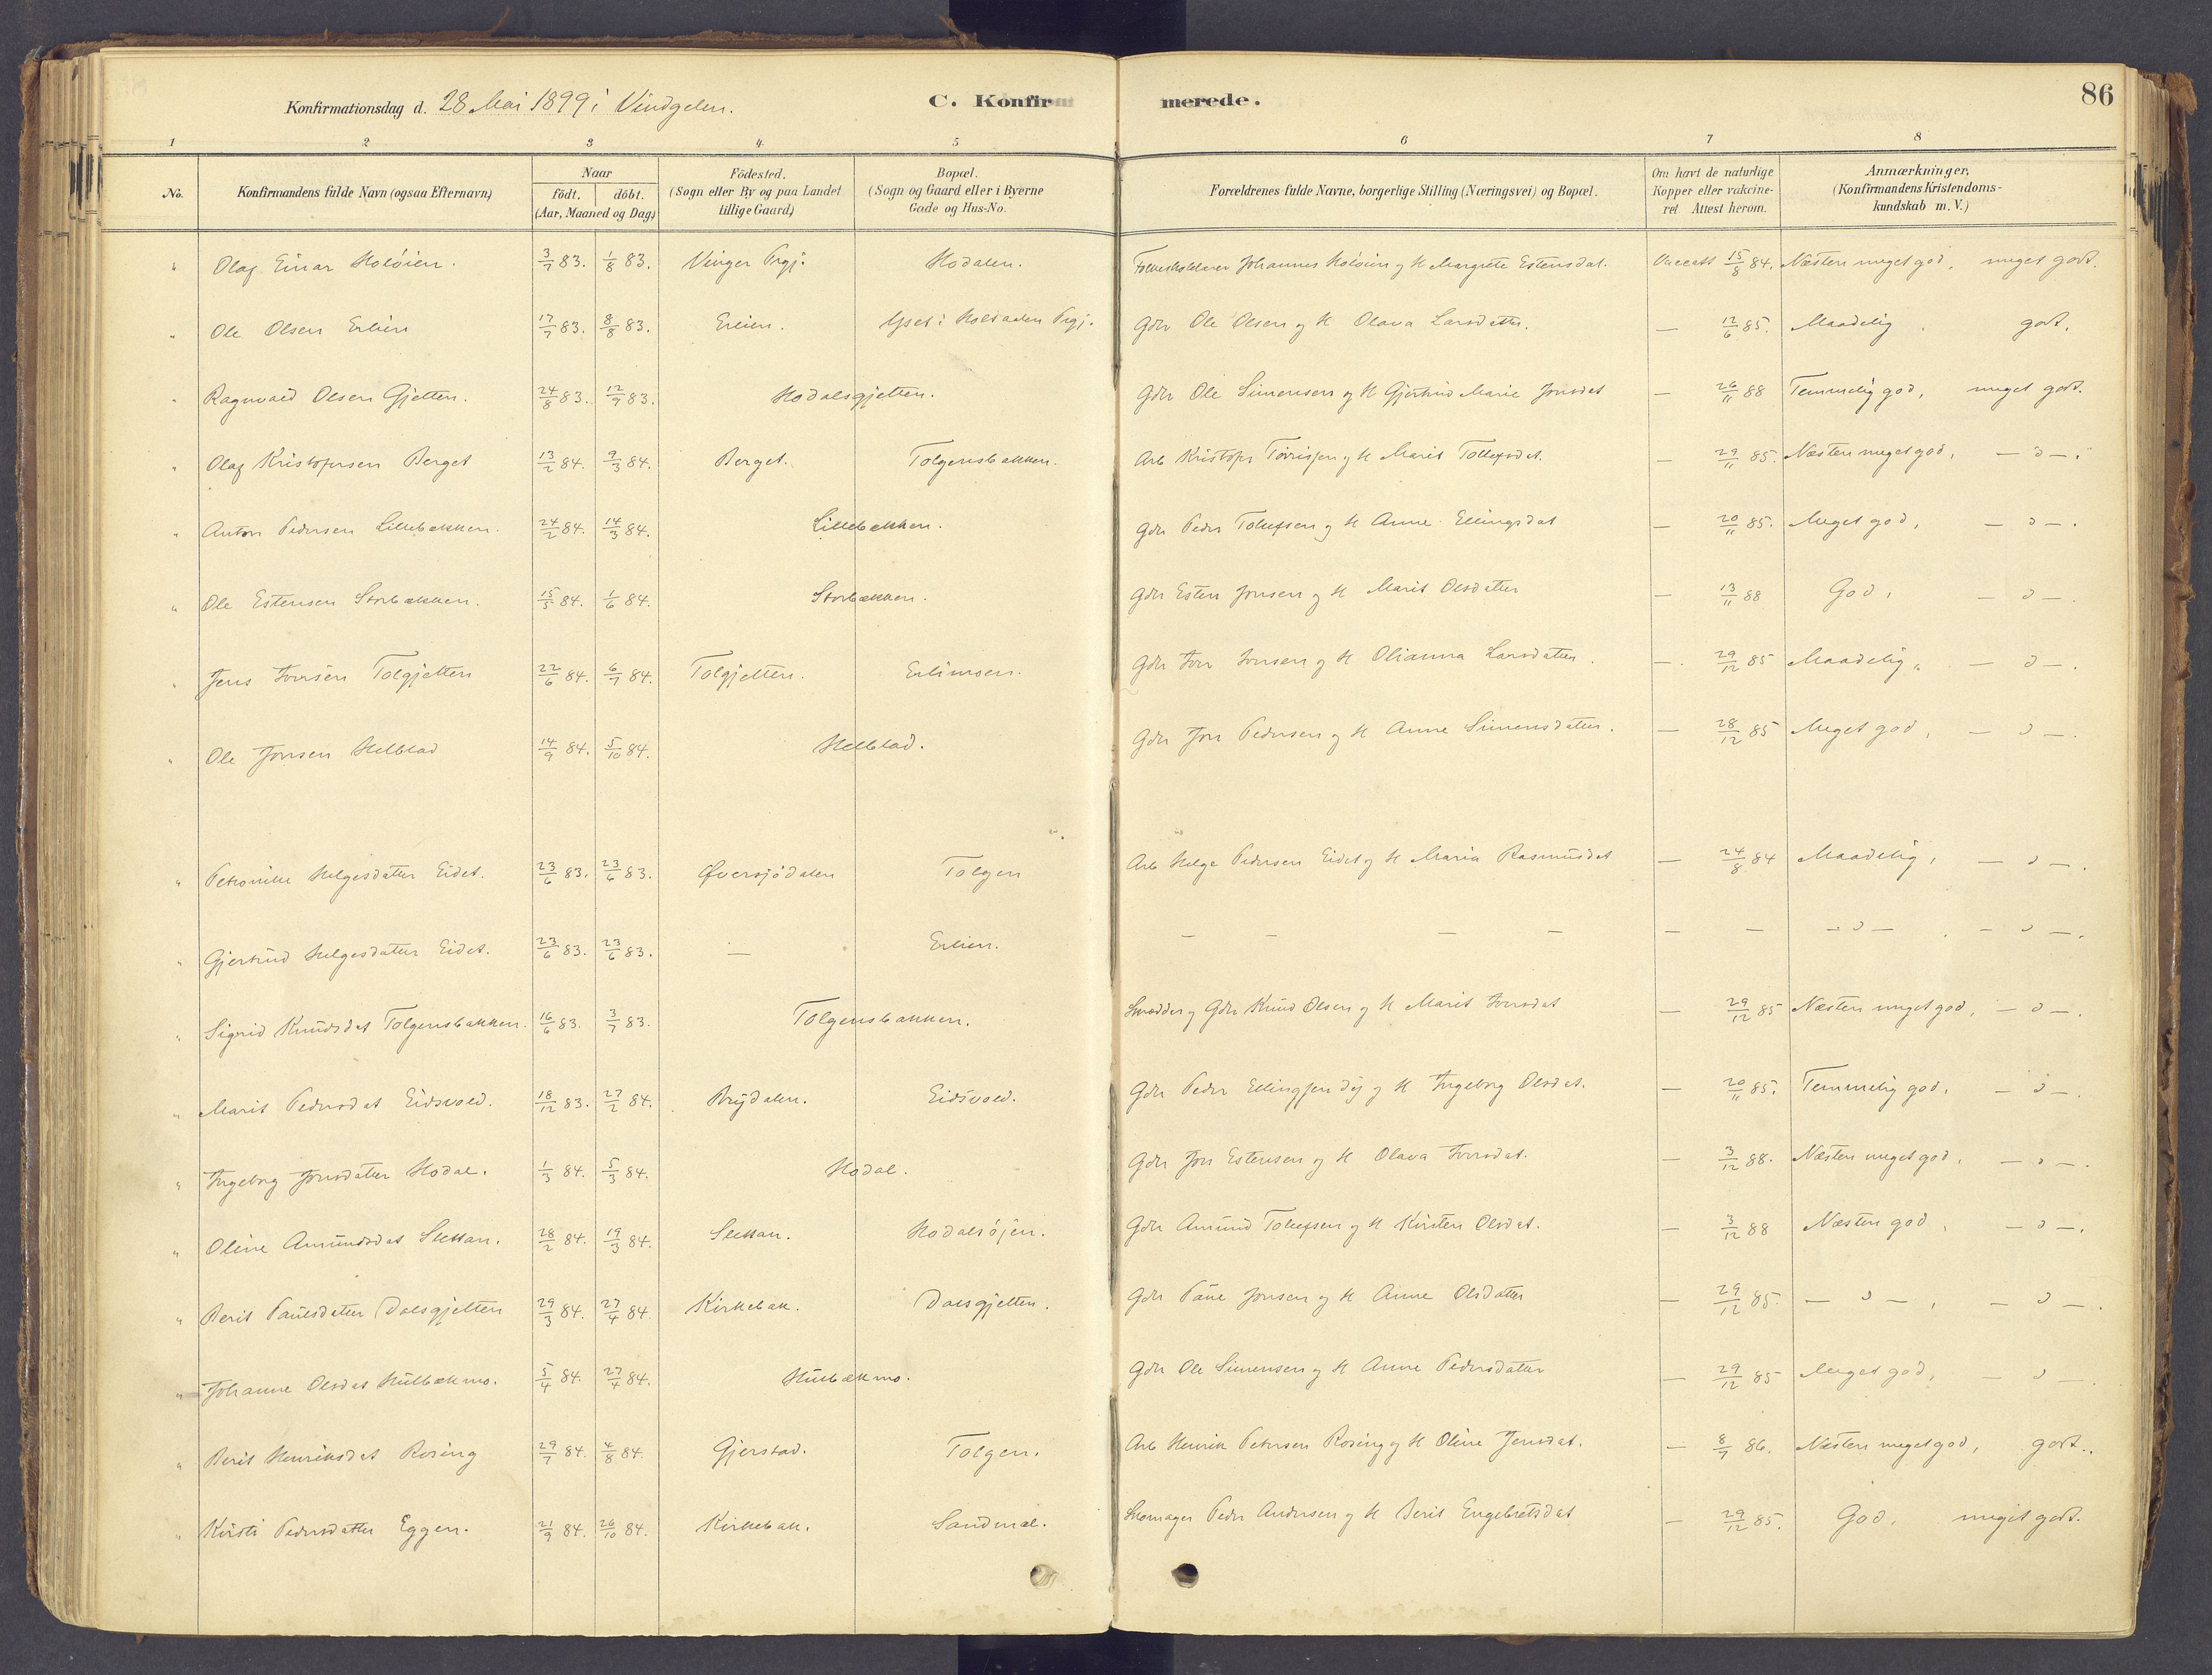 Konfirmationsdag d. 28 Mai 1899 i Vindgelen. C. Konfirmerede. 86
1 2 3 4 5 6 7 8
No. Konfirmandens fulde Navn (ogsaa Efternavn) Naar født. døbt. (Aar, Maaned og Dag) Födested. (Sogn eller By og paa Landet tillige Gaard) Bopæl. (Sogn og Gaard eller i Byerne Gade og Hus-No. Forældrenes fulde Navne, borgerlige Stilling (Næringsvei) og Bopæl. Om havt de naturlige Kopper eller vakcineret. Attest herom. Anmærkninger, (Konfirmandens Kristendomskundskab m. V.)
" Olaf Einar Holöien. 3/7 83. 1/8 83. Vinger Prgj. Hodalen. Johannes Holöien og H Margrete Estensdat. 15/8 84. Næsten meget god, meget godt.
" Ole Olsen Erlien 17/7 83. 8/8 83. Erlien. Prgj. Gdr Ole Olsen og H Olava Larsdatter. — 12/6 85. Maadelig, godt.
" Ragnvald Olsen Gjetten. 24/8 83. 12/9 83. Hodalsgjetten. Gdr Ole Simensen og H Gjertrud Marie Jonsdat — 26/11 88 Temmelig god, meget godt.
" Olaf Kristofersen Berget 13/2 84. 9/3 84. Berget. Tolgensbakken. Arb Kristofer og H Marit Tollefsdat. — 29/11 85. Næsten meget god, — " —.
" Anton Pedersen Lillebækken. 24/2 84. 14/3 84. Lillebækken. Gdr Peder Tollefsen og H Anne Ellingsdat — 20/11 85. Meget god, — " —.
" Ole Estensen Storbækken. 15/5 84. 1/6 84. Storbækken. Gdr Esten Jonsen og H Marit Olsdatter — 13/11 88 God, — " —.
" Jens Iversen Tolgjetten 22/6 84. 6/7 84. Tolgjetten. Erlimoen. Gdr Iver Iversen og H Olianna Larsdatter. — 29/12 85 Maadelig, — " —.
" Ole Jonsen Helblad 14/9 84. 5/10 84. Helblad. Gdr Jon Pedersen og H Anne Simensdatter. — 28/12 85 Meget god, — " —.
" Petronille Helgesdatter Eidet. 23/6 83. 23/6 83. Øversjödalen Tolgen Arb Helge Pedersen Eidet og H Maria Rasmusdat — 24/8 84 Maadelig, — " —.
" Gjertrud Helgesdatter Eidet. 23/6 83. 23/6 83. — Erlien. — — — — — — — " — , — " —.
" Sigrid Knudsdat Tolgensbakken. 16/6 83. 3/7 83. Tolgensbakken. Skrædder og Gdr Knud Olsen og H Marit Iversdat — 29/12 85 Næsten meget god, — " —.
" Marit Pedersdat Eidsvold. 18/12 83. 27/2 84. Brydalen. Eidsvold. Gdr Peder Ellingsen og H Ingeborg Olsdat. — 20/11 85. Temmelig god, — " —.
" Ingeborg Jonsdatter Hodal. 1/3 84. 5/3 84. Hodal. Gdr Jon Estensen og H Olava Iversdat. — 3/12 88. Næsten meget god, — " —.
" Oline Amundsdat Slettan. 28/2 84. 19/3 84. Slettan. Hodalsöjen. Gdr Amund Tollefsen og H Kirsten Olsdat. — 3/12 88 Næsten god, — " —.
" Berit Paulsdatter Dalsgjetten 29/3 84. 27/4 84 Kirkebak. Dalsgjetten. Gdr Paul Jonsen og H Anne Olsdatter — 29/12 85. — " — , — " —.
" Johanne Olsdat Hulbækmo. 5/4 84. 27/4 84. Hulbækmo. Gdr Ole Simensen og H Anne Pedersdatter — 29/12 85 Meget god, — " —.
" Berit Henriksdat Rosing 29/7 84. 4/8 84. Gjerstad. Tolgen. Arb Henrik Petersen Rosing og H Oline Jensdat. — 8/7 86. Næsten meget god, godt.
" Kirsti Pedersdatter Eggen. 21/9 84. 26/10 84. Kirkebak. Sandmæl. Skomager Peder Andersen og H Berit Engebretsdat — 29/12 85. God, meget godt.